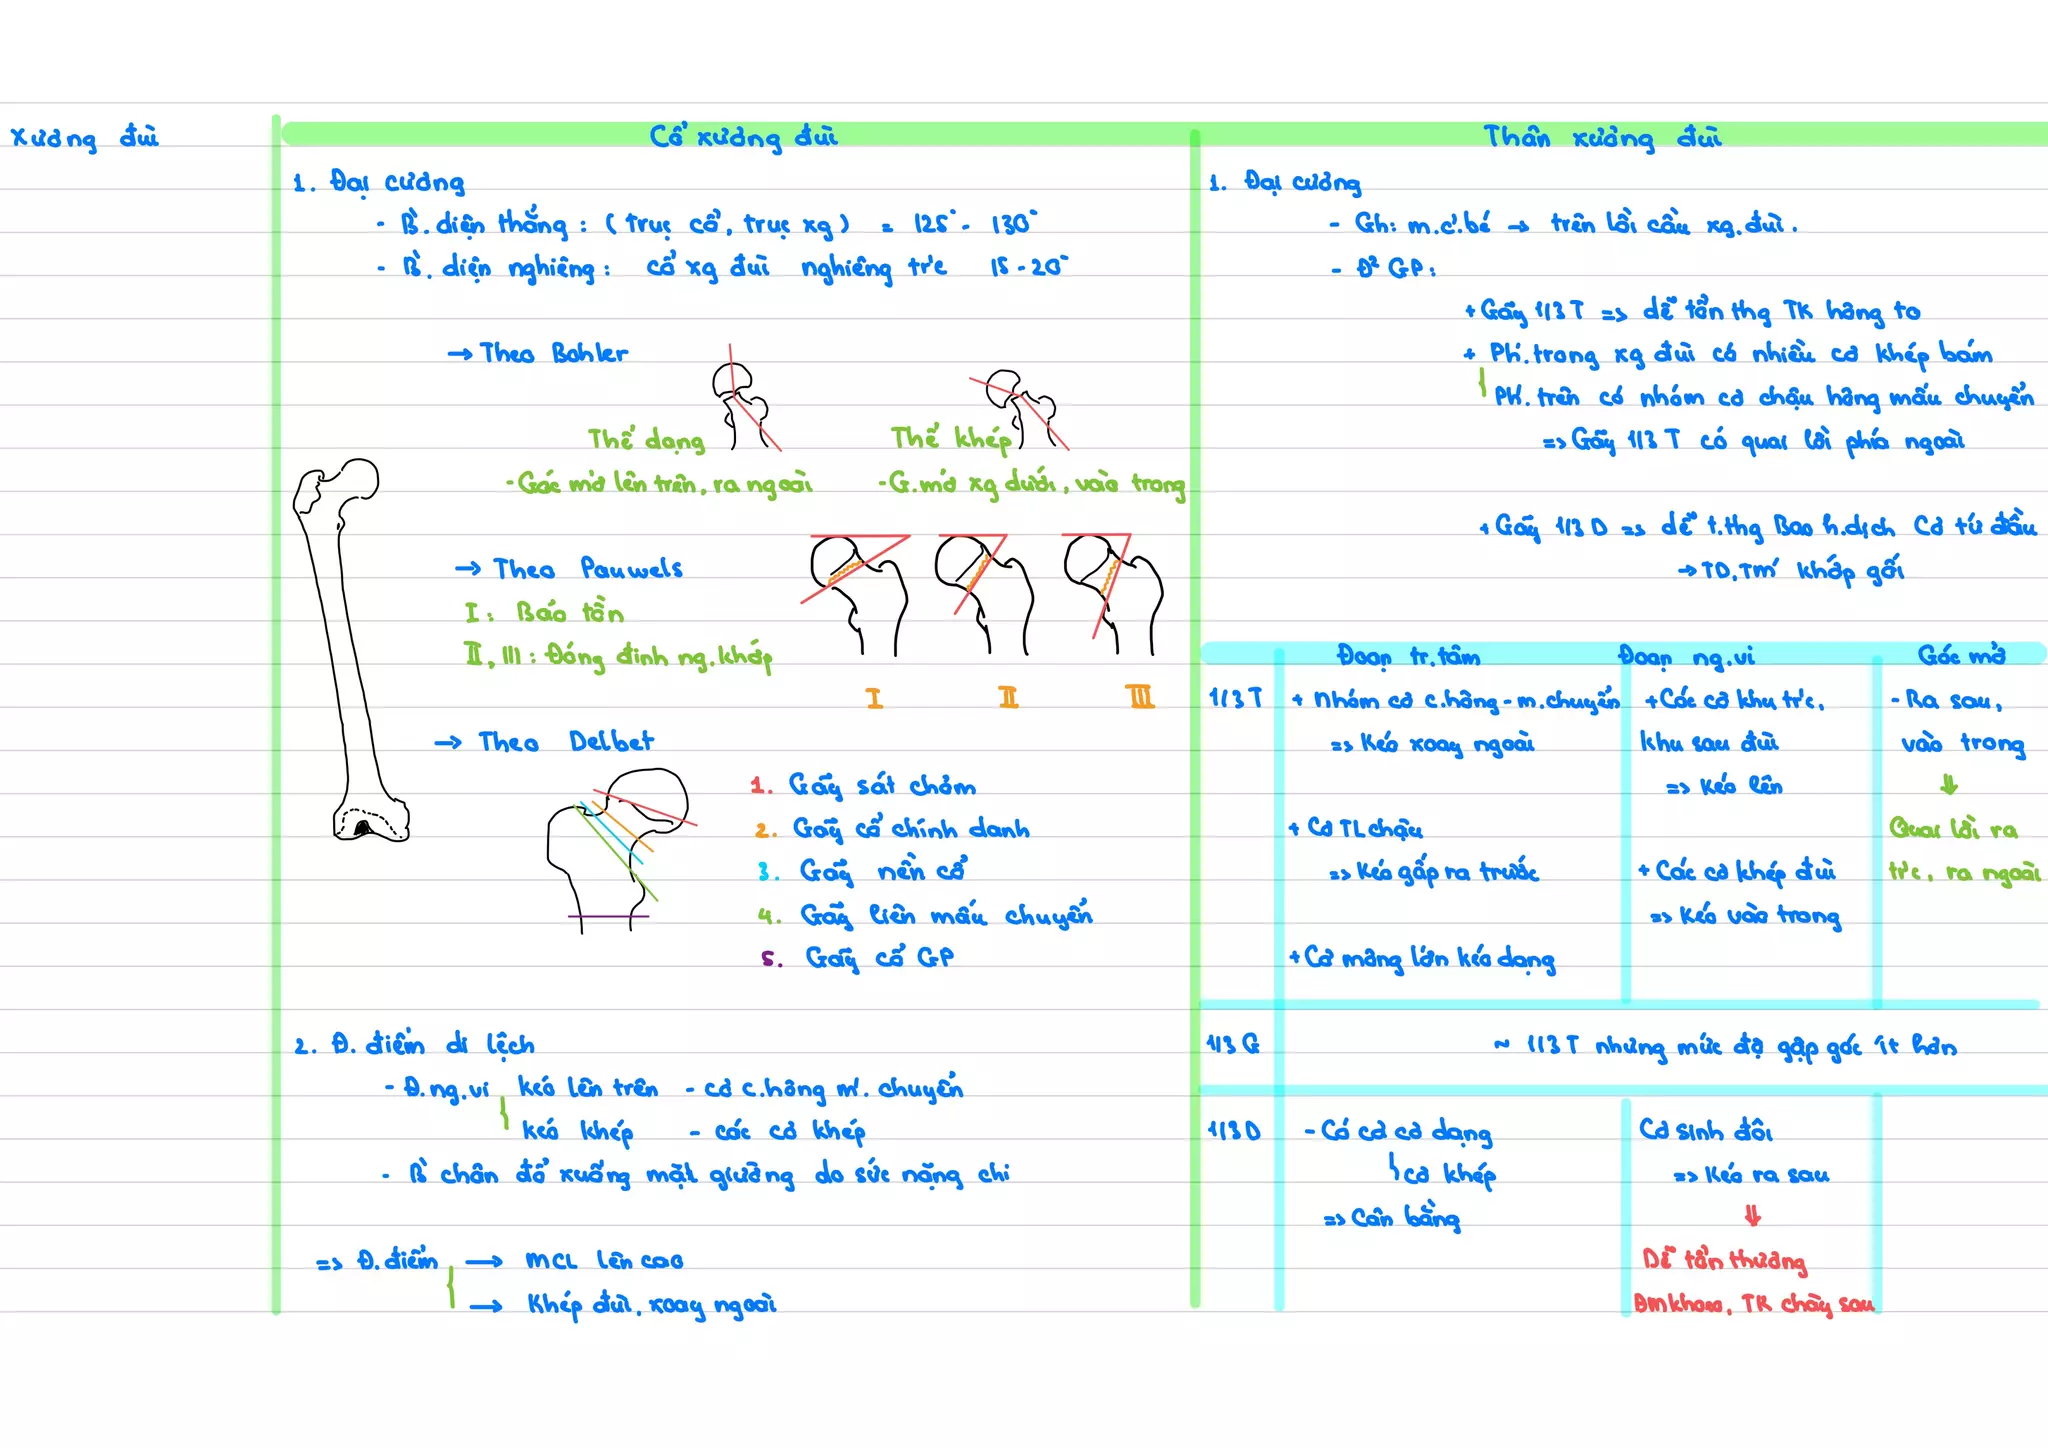 Xương đùi
Cổ xương đùi
1. Đại cương
- B. diện thẳng : ( trục cổ, trục xg ) = 125° - 130°
- B. diện nghiêng : cổ xg đùi nghiêng tr'c 15 - 20°
→ Theo Bohler
Thể dạng
- Góc mở lên trên, ra ngoài
Thể khép
- G. mở xg dưới, vào trong
→ Theo Pauwels
I : Bảo tồn
II, III : Đóng đinh ng. khớp
I II III
→ Theo Delbet
1. Gãy sát chỏm
2. Gãy cổ chính danh
3. Gãy nền cổ
4. Gãy liên mấu chuyển
5. Gãy cổ GP
2. Đ. điểm di lệch
- Đ. ng. vi kéo lên trên - cơ c. hông m'. chuyển
kéo khép - các cơ khép
- B chân đổ xuống mặt giường do sức nặng chi
=> Đ. điểm → MCL lên cao
→ Khép đùi, xoay ngoài
Thân xương đùi
1. Đại cương
- Gh: m.c'.bé → trên lồi cầu xg. đùi.
- Đ² GP :
+ Gãy 1/3 T => dễ tổn thg TK hông to
+ Ph'. trong xg đùi có nhiều cơ khép bám
Ph'. trên có nhóm cơ chậu hông mấu chuyển
=> Gãy 1/3 T có quai lồi phía ngoài
+ Gãy 1/3 D => dễ t. thg Bao h. dịch Cơ tứ đầu
→ TD, TM' khớp gối
Đoạn tr. tâm Đoạn ng. vi Góc mở
1/3 T + Nhóm cơ c. hông - m. chuyển + Các cơ khu tr'c, - Ra sau,
=> Kéo xoay ngoài khu sau đùi vào trong
=> Kéo lên ⇓
+ Cơ TL chậu Quai lồi ra
=> Kéo gấp ra trước + Các cơ khép đùi tr'c, ra ngoài
=> Kéo vào trong
+ Cơ mông lớn kéo dạng
1/3 G ~ 1/3 T nhưng mức độ gập góc ít hơn
1/3 D - Có cơ cơ dạng Cơ sinh đôi
cơ khép => Kéo ra sau
=> Cân bằng ⇓
Dễ tổn thương
ĐM khoeo, TK chày sau